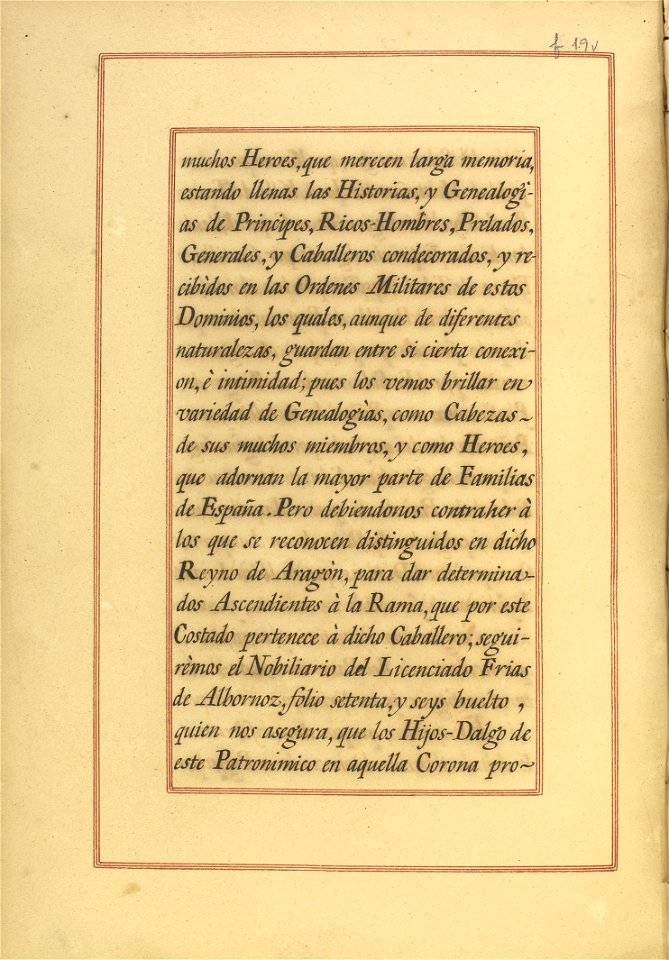 f 19v
muchos Heroes, que merecen larga memoria,
estando llenas las Historias, y Genealogì-
as de Principes, Ricos-Hombres, Prelados,
Generales, y Caballeros condecorados, y re-
cibìdos en las Ordenes Militares de estos
Dominios, los quales, aunque de diferentes
naturalezas, guardan entre si cierta conexi-
on, è intimidad; pues los vemos brillar en
variedad de Genealogìas, como Cabezas~
de sus muchos miembros, y como Heroes,
que adornan la mayor parte de Familias
de España. Pero debiendonos contraher à
los que se reconocen distinguidos en dicho
Reyno de Aragòn, para dar determina-
dos Ascendientes à la Rama, que por este
Costado pertenece à dicho Caballero; segui-
rèmos el Nobiliario del Licenciado Frias
de Albornoz, folio setenta, y seys buelto,
quien nos asegura, que los Hijos-Dalgo de
este Patronimico en aquella Corona pro~